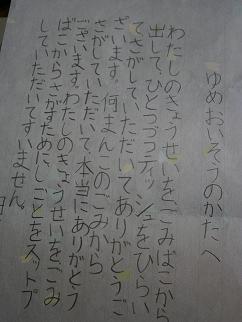 ゆめおいそうのかたへ
わたしのきょうせいをごみばこから
出して、ひとつづつティッシュをひらい
てさがしていただいてありがとうご
ざいます。何まんこのごみから
さがしていただいて本当にありがとう
ございます。わたしのきょうせいをごみ
ばこからさがすためにしごとをストップ
していただいてすいません。